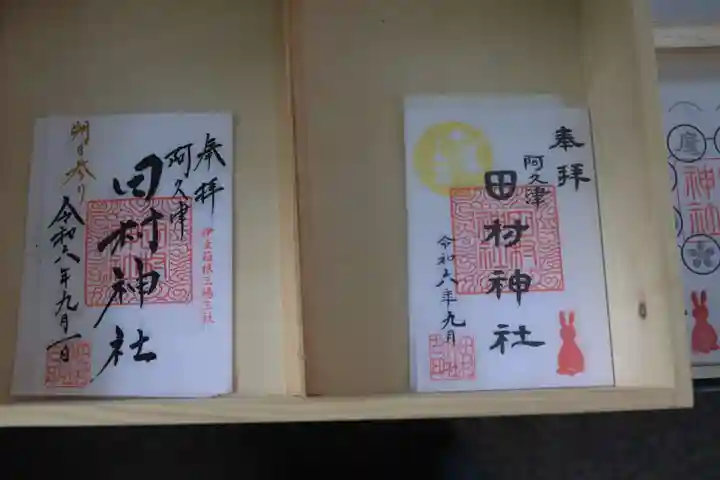 奉拝
阿久津
田村神社
伊豆箱根三嶋三社
朔日参り
令和六年九月一日
奉拝
阿久津
田村神社
令和六年九月
神社